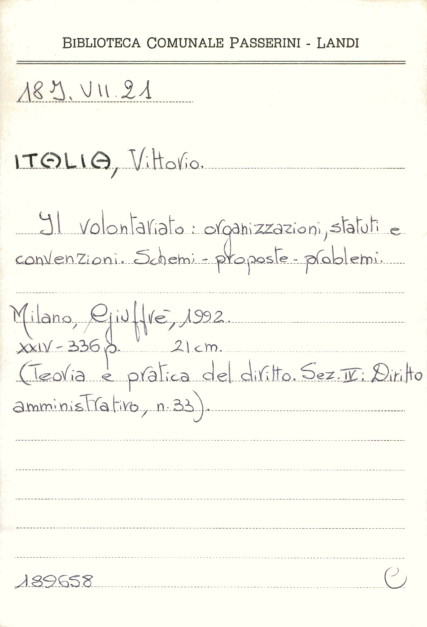 BIBLIOTECA COMUNALE PASSERINI - LANDI
18 J. VII 21
ITALIA, Vittorio.
Il volontariato : organizzazioni, statuti e
convenzioni. Schemi - proposte - problemi.
Milano, Giuffrè, 1992.
XXIV - 336 p. 21 cm.
(Teoria e pratica del diritto. Sez. IV : Diritto
amministrativo, n. 33).
189658
C